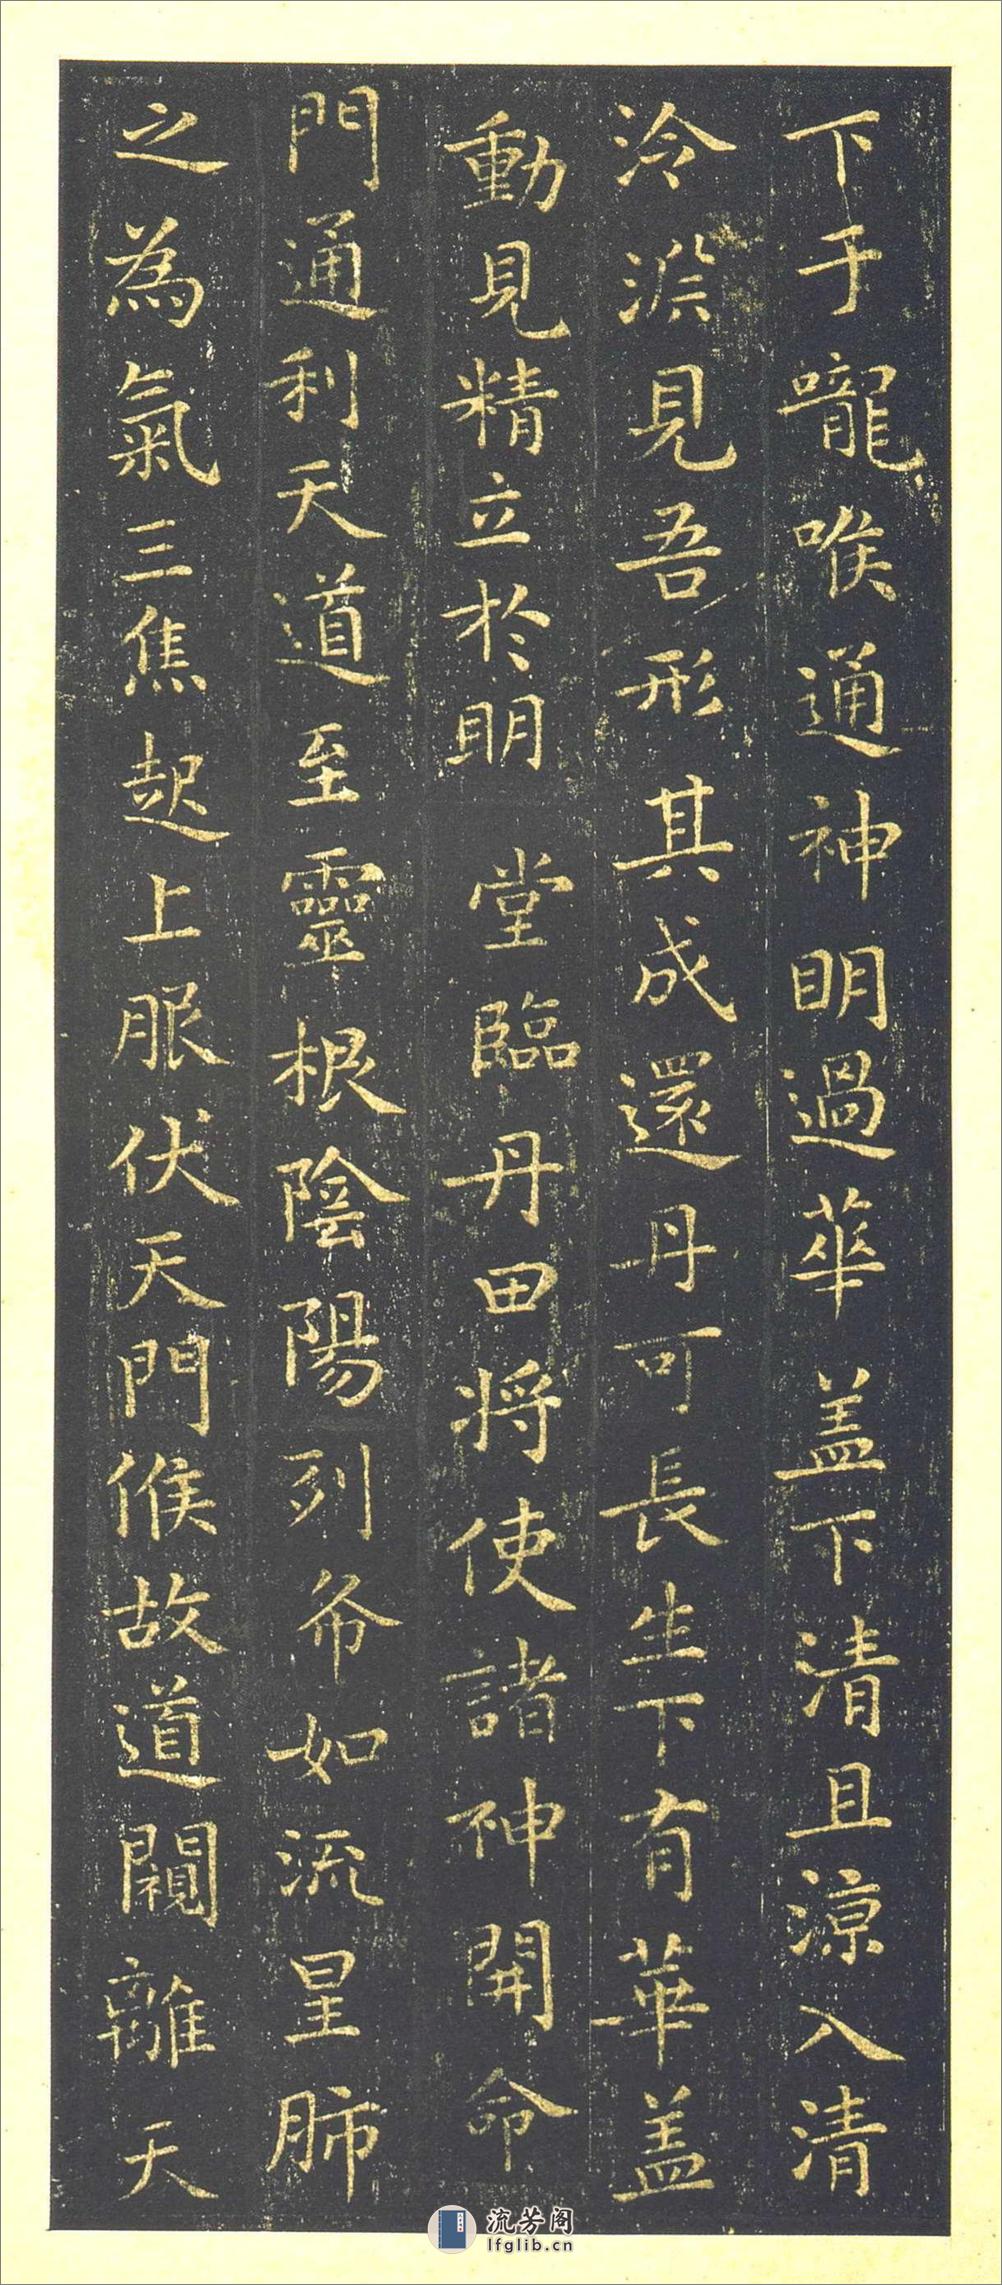 下于嚨喉通神明過華盖下清且涼入清
泠淵見吾形其成還丹可長生下有華盖
動見精立於明堂臨丹田将使諸神開命
門通利天道至靈根陰陽列布如流星肺
之為氣三焦起上服伏天門候故道闚離天
流芳阁
lfglib.cn